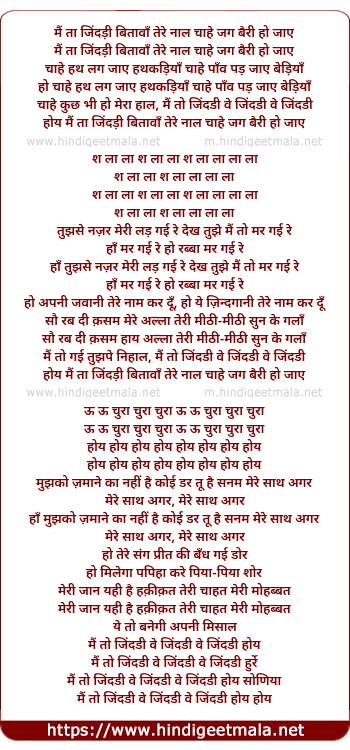 मैं ता जिंदड़ी बितावाँ तेरे नाल चाहे जग बैरी हो जाए
मैं ता जिंदड़ी बितावाँ तेरे नाल चाहे जग बैरी हो जाए
चाहे हथ लग जाए हथकड़ियाँ चाहे पाँव पड़ जाए बेड़ियाँ
हो चाहे हथ लग जाए हथकड़ियाँ चाहे पाँव पड़ जाए बेड़ियाँ
चाहे कुछ भी हो मेरा हाल, मैं तो जिंदडी वे जिंदडी वे जिंदडी
होय मैं ता जिंदड़ी बितावाँ तेरे नाल चाहे जग बैरी हो जाए
www.hindigeetmala.net m.hindigeetmala.net
श ला ला श ला ला श ला ला ला ला
श ला ला श ला ला ला ला
श ला ला श ला ला श ला ला ला ला
श ला ला श ला ला ला ला
तुझसे नज़र मेरी लड़ गई रे देख तुझे मैं तो मर गई रे
हाँ मर गई रे हो रब्बा मर गई रे
हाँ तुझसे नज़र मेरी लड़ गई रे देख तुझे मैं तो मर गई रे
हाँ मर गई रे हो रब्बा मर गई रे
हो अपनी जवानी तेरे नाम कर दूँ, हो ये ज़िन्दगानी तेरे नाम कर दूँ
सौ रब दी क़सम मेरे अल्ला तेरी मीठी-मीठी सुन के गलाँ
सौ रब दी क़सम हाय अल्ला तेरी मीठी-मीठी सुन के गलाँ
मैं तो गई तुझपे निहाल, मैं तो जिंदडी वे जिंदडी वे जिंदडी
होय मैं ता जिंदड़ी बितावाँ तेरे नाल चाहे जग बैरी हो जाए
www.hindigeetmala.net m.hindigeetmala.net
ऊ ऊ चुरा चुरा चुरा ऊ ऊ चुरा चुरा चुरा
ऊ ऊ चुरा चुरा चुरा ऊ ऊ चुरा चुरा चुरा
होय होय होय होय होय होय होय होय
होय होय होय होय होय होय होय होय
मुझको ज़माने का नहीं है कोई डर तू है सनम मेरे साथ अगर
मेरे साथ अगर, मेरे साथ अगर
हाँ मुझको ज़माने का नहीं है कोई डर तू है सनम मेरे साथ अगर
मेरे साथ अगर, मेरे साथ अगर
हो तेरे संग प्रीत की बँध गई डोर
हो मिलेगा पपिहा करे पिया-पिया शोर
मेरी जान यही है हक़ीक़त तेरी चाहत मेरी मोहब्बत
मेरी जान यही है हक़ीक़त तेरी चाहत मेरी मोहब्बत
ये तो बनेगी अपनी मिसाल
मैं तो जिंदडी वे जिंदडी वे जिंदडी होय
मैं तो जिंदडी वे जिंदडी वे जिंदडी हुर्रे
मैं तो जिंदडी वे जिंदडी वे जिंदडी होय सोणिया
मैं तो जिंदडी वे जिंदडी वे जिंदडी होय होय
https://www.hindigeetmala.net